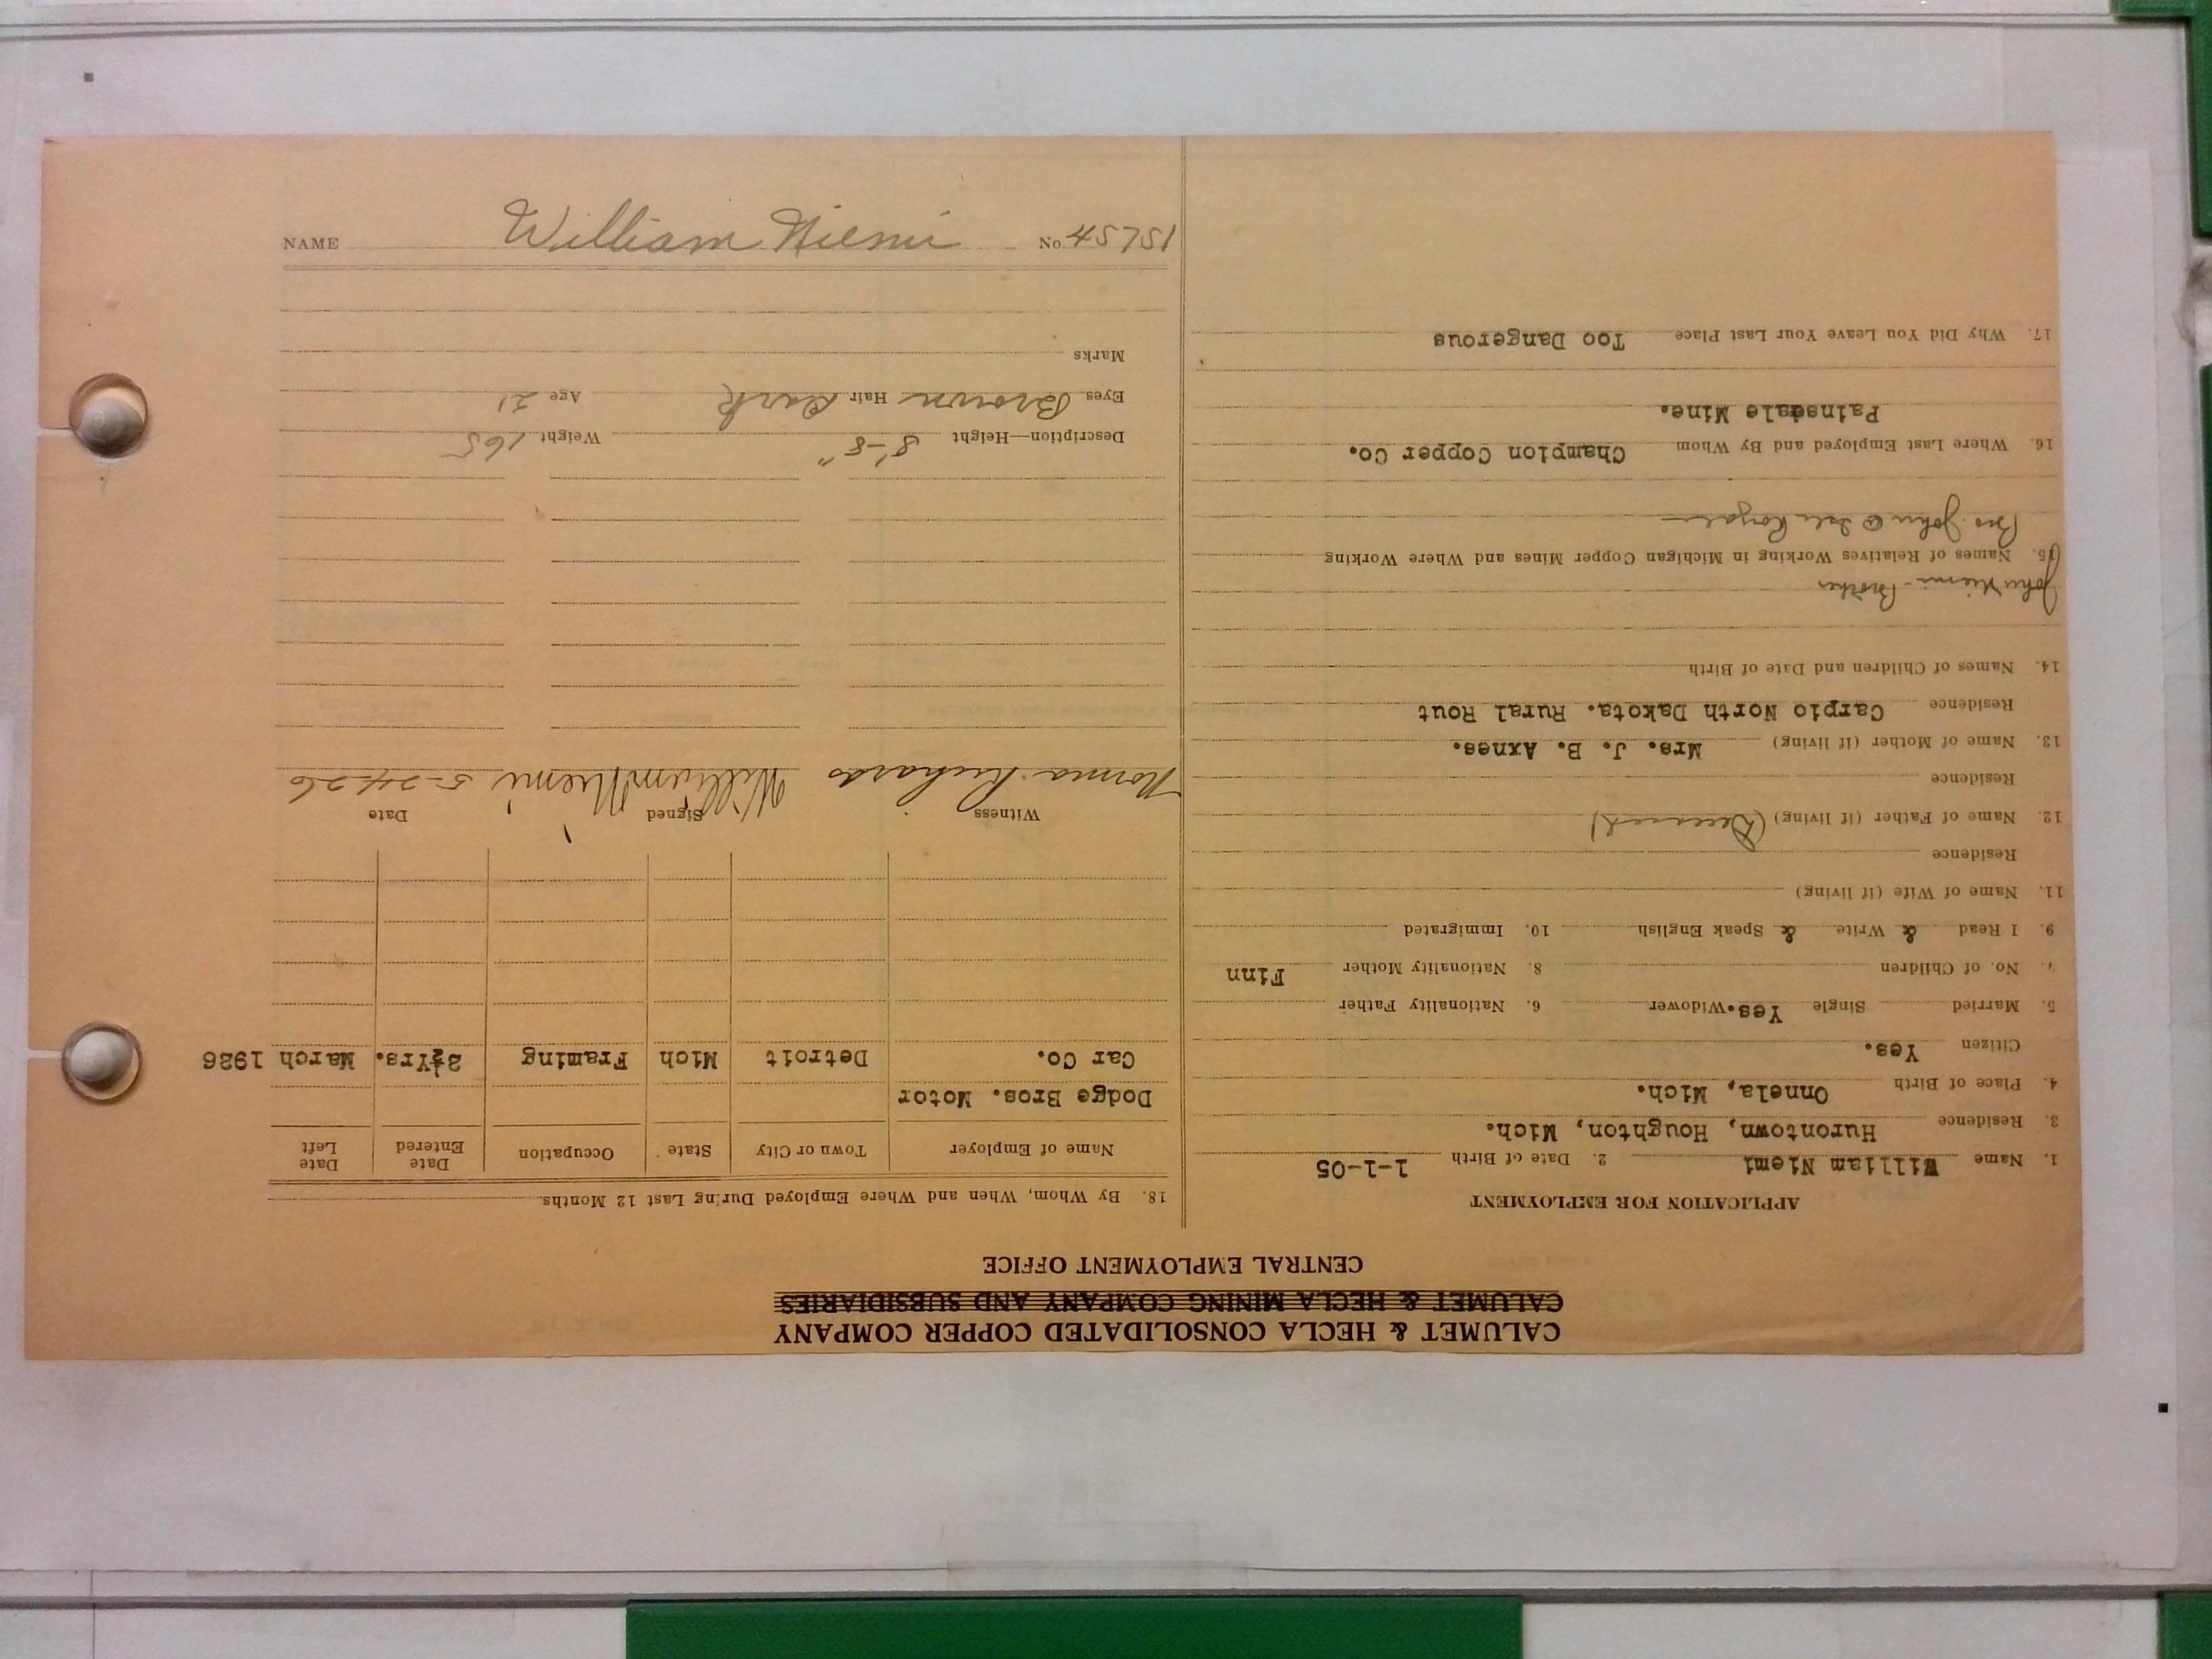 CALUMET & HECLA CONSOLIDATED COPPER COMPANY
CALUMET & HECLA MINING COMPANY AND SUBSIDIARIES
CENTRAL EMPLOYMENT OFFICE
APPLICATION FOR EMPLOYMENT
1. Name William Niemi 2. Date of Birth 1-1-05
3. Residence Hurontown, Houghton, Mich.
4. Place of Birth Onnela, Mich.
Citizen Yes.
5. Married Single Yes. Widower 6. Nationality Father
7. No. of Children 8. Nationality Mother Finn
9. I Read & Write & Speak English 10. Immigrated
11. Name of Wife (if living)
Residence
12. Name of Father (if living) (Deceased)
Residence
13. Name of Mother (if living) Mrs. J. B. Axnes.
Residence Carpio North Dakota. Rural Rout
14. Names of Children and Date of Birth
John Niemi - Brother
15. Names of Relatives Working in Michigan Copper Mines and Where Working
Bro. John @ Isle Royale
16. Where Last Employed and By Whom Champion Copper Co.
Painsdale Mine.
17. Why Did You Leave Your Last Place Too Dangerous
18. By Whom, When and Where Employed During Last 12 Months
Name of Employer Town or City State Occupation Date Entered Date Left
Dodge Bros. Motor
Car Co. Detroit Mich Framing 2½Yrs. March 1926
Witness Signed Date
Norma Richards William Niemi 5-24-26
Description—Height 5'-8" Weight 165
Eyes Brown Hair Dark Age 21
Marks
NAME William Niemi No. 45751